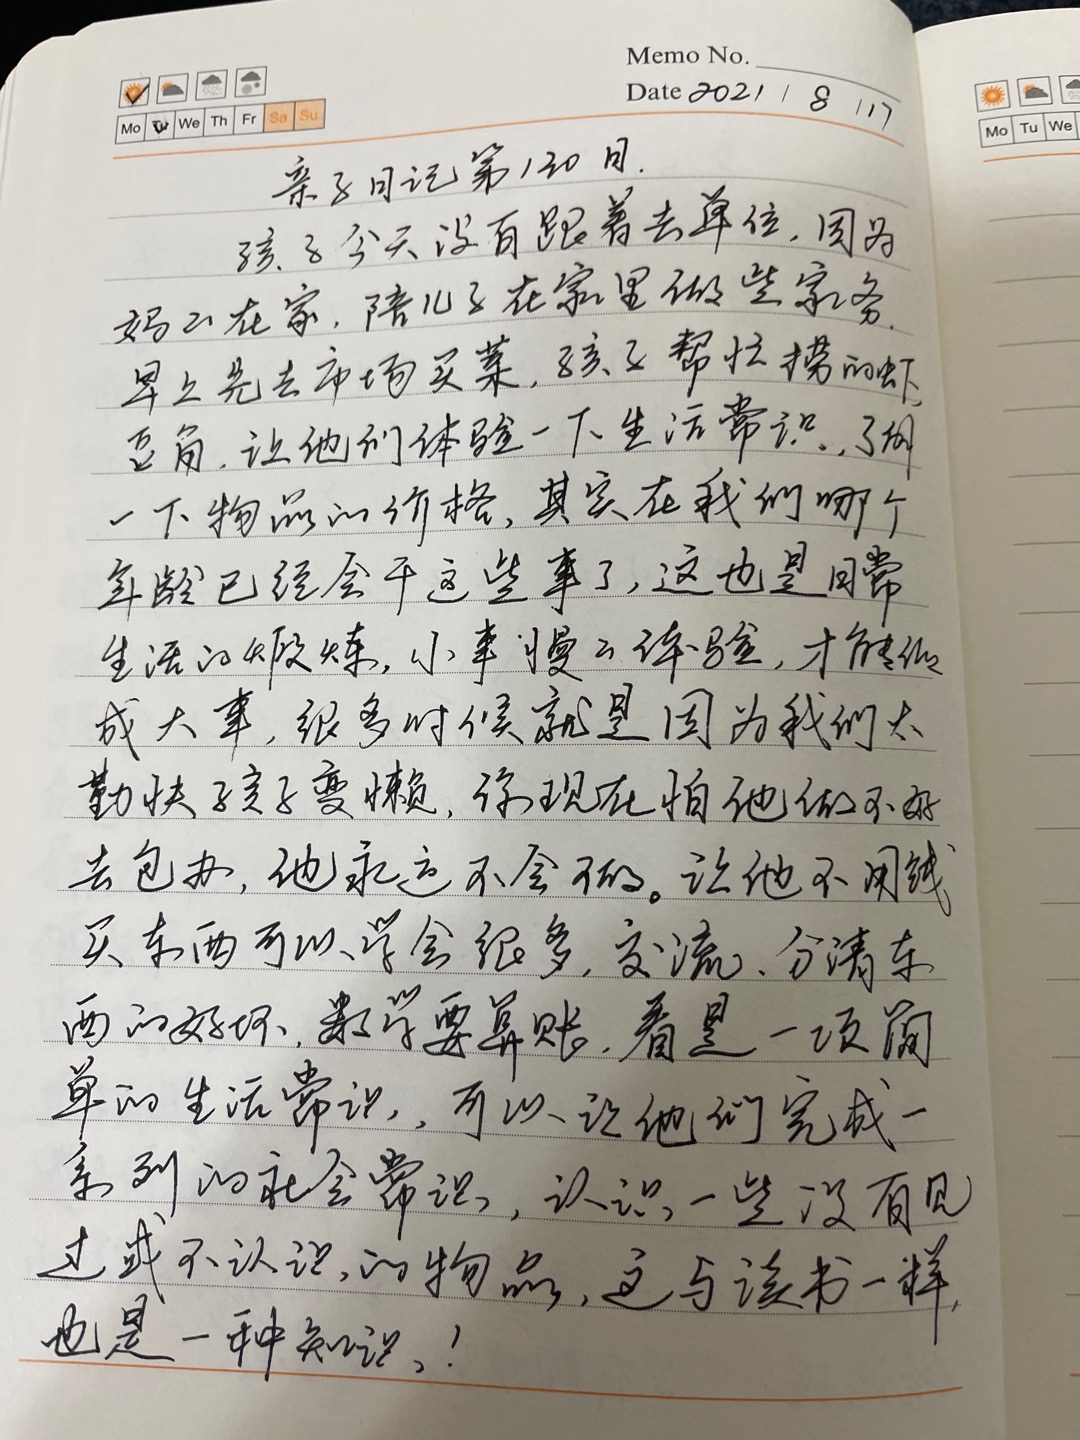 Memo No.
Date 2021 / 8 / 17
Mo Tu We Th Fr Sa Su
Mo Tu We
亲子日记第120日.
孩子今天没有跟着去单位，因为
妈妈在家，陪儿子在家里做些家务.
早上先去市场买菜，孩子帮忙捞的虾，
豆角，让他们体验一下生活常识，了解
一下物品的价格，其实在我们哪个
年龄已经会干这些事了，这也是日常
生活的煅炼，小事慢慢体验，才能做
成大事，很多时候就是因为我们太
勤快孩子变懒，你现在怕他做不好
去包办，他永远不会做。让他不用钱
买东西可以学会很多，交流、分清东
西的好坏，数学要算账，看是一项简
单的生活常识，可以让他们完成一
系列的社会常识，认识一些没有见
过或不认识的物品，这与读书一样，
也是一种知识！